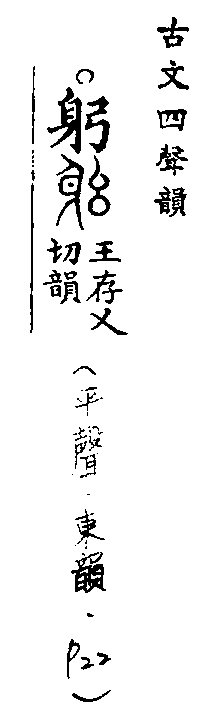 古文四聲韻
○躬
王存乂
切韻
(平聲．東韻．P22)